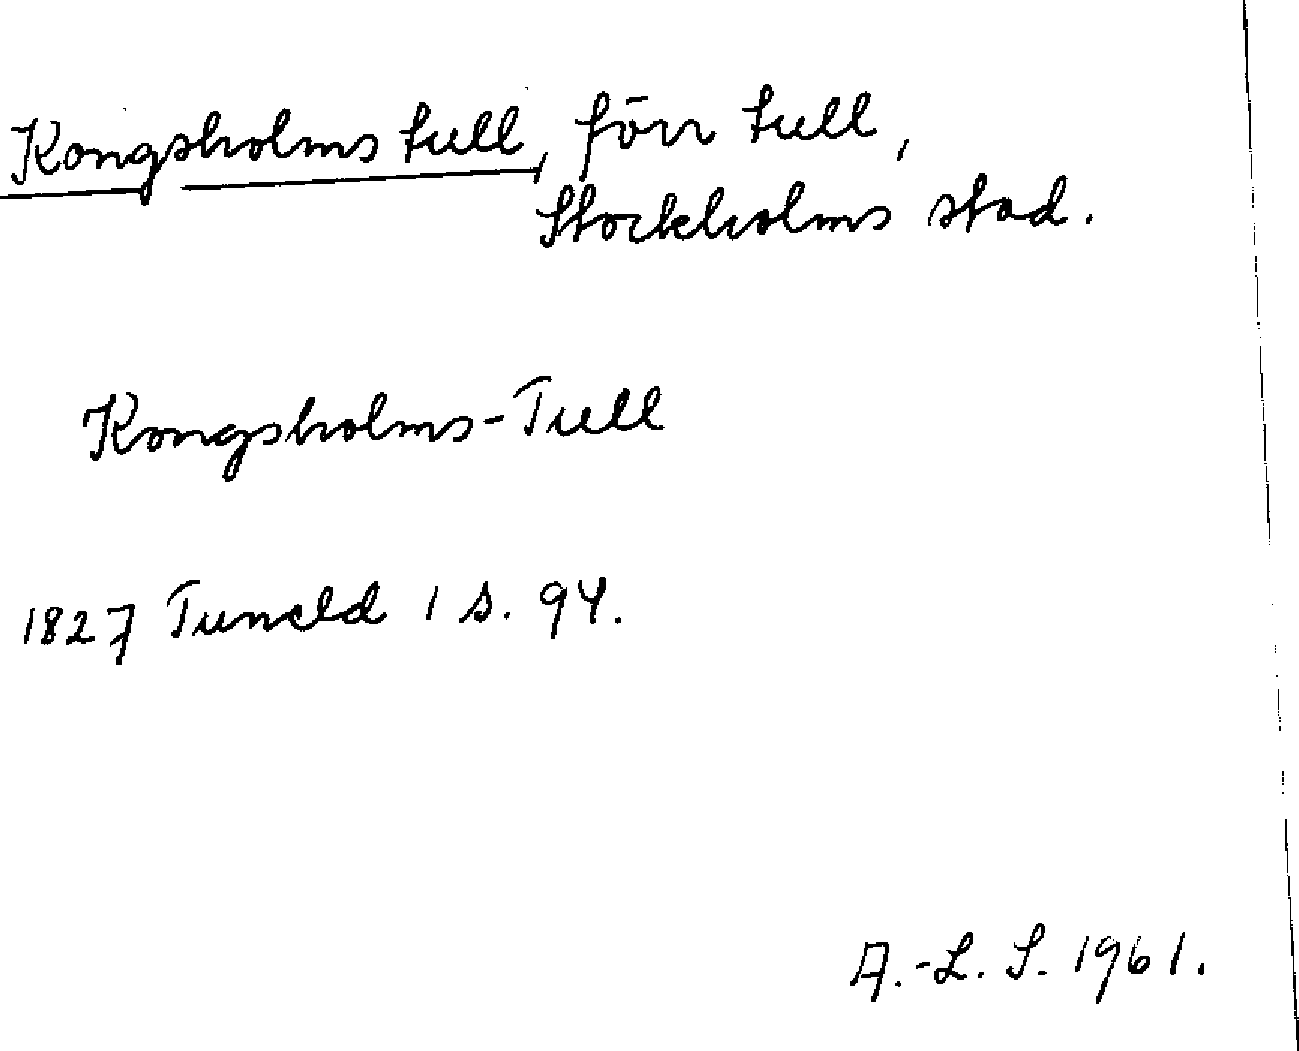 Kongsholms tull, förr tull,
Stockholms stad.
Kongsholms-Tull
1827 Tuneld 1 s. 94.
A.-L. S. 1961.